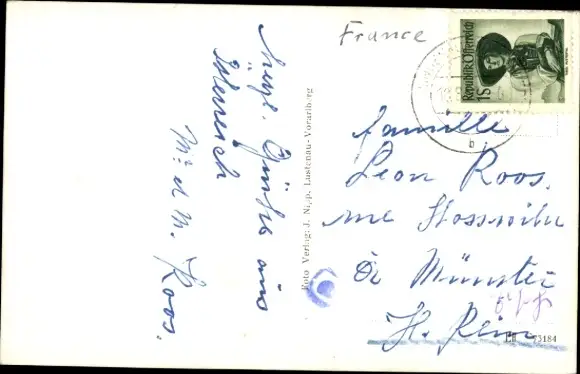 France
Republik Österreich
1S
famille
Leon Roos.
rue
de Münster
H. Rhin
Herzl. Grüße aus
Österreich
Mr et M. Roos.
Foto Verlag: J. Nipp, Lustenau-Vorarlberg
73184